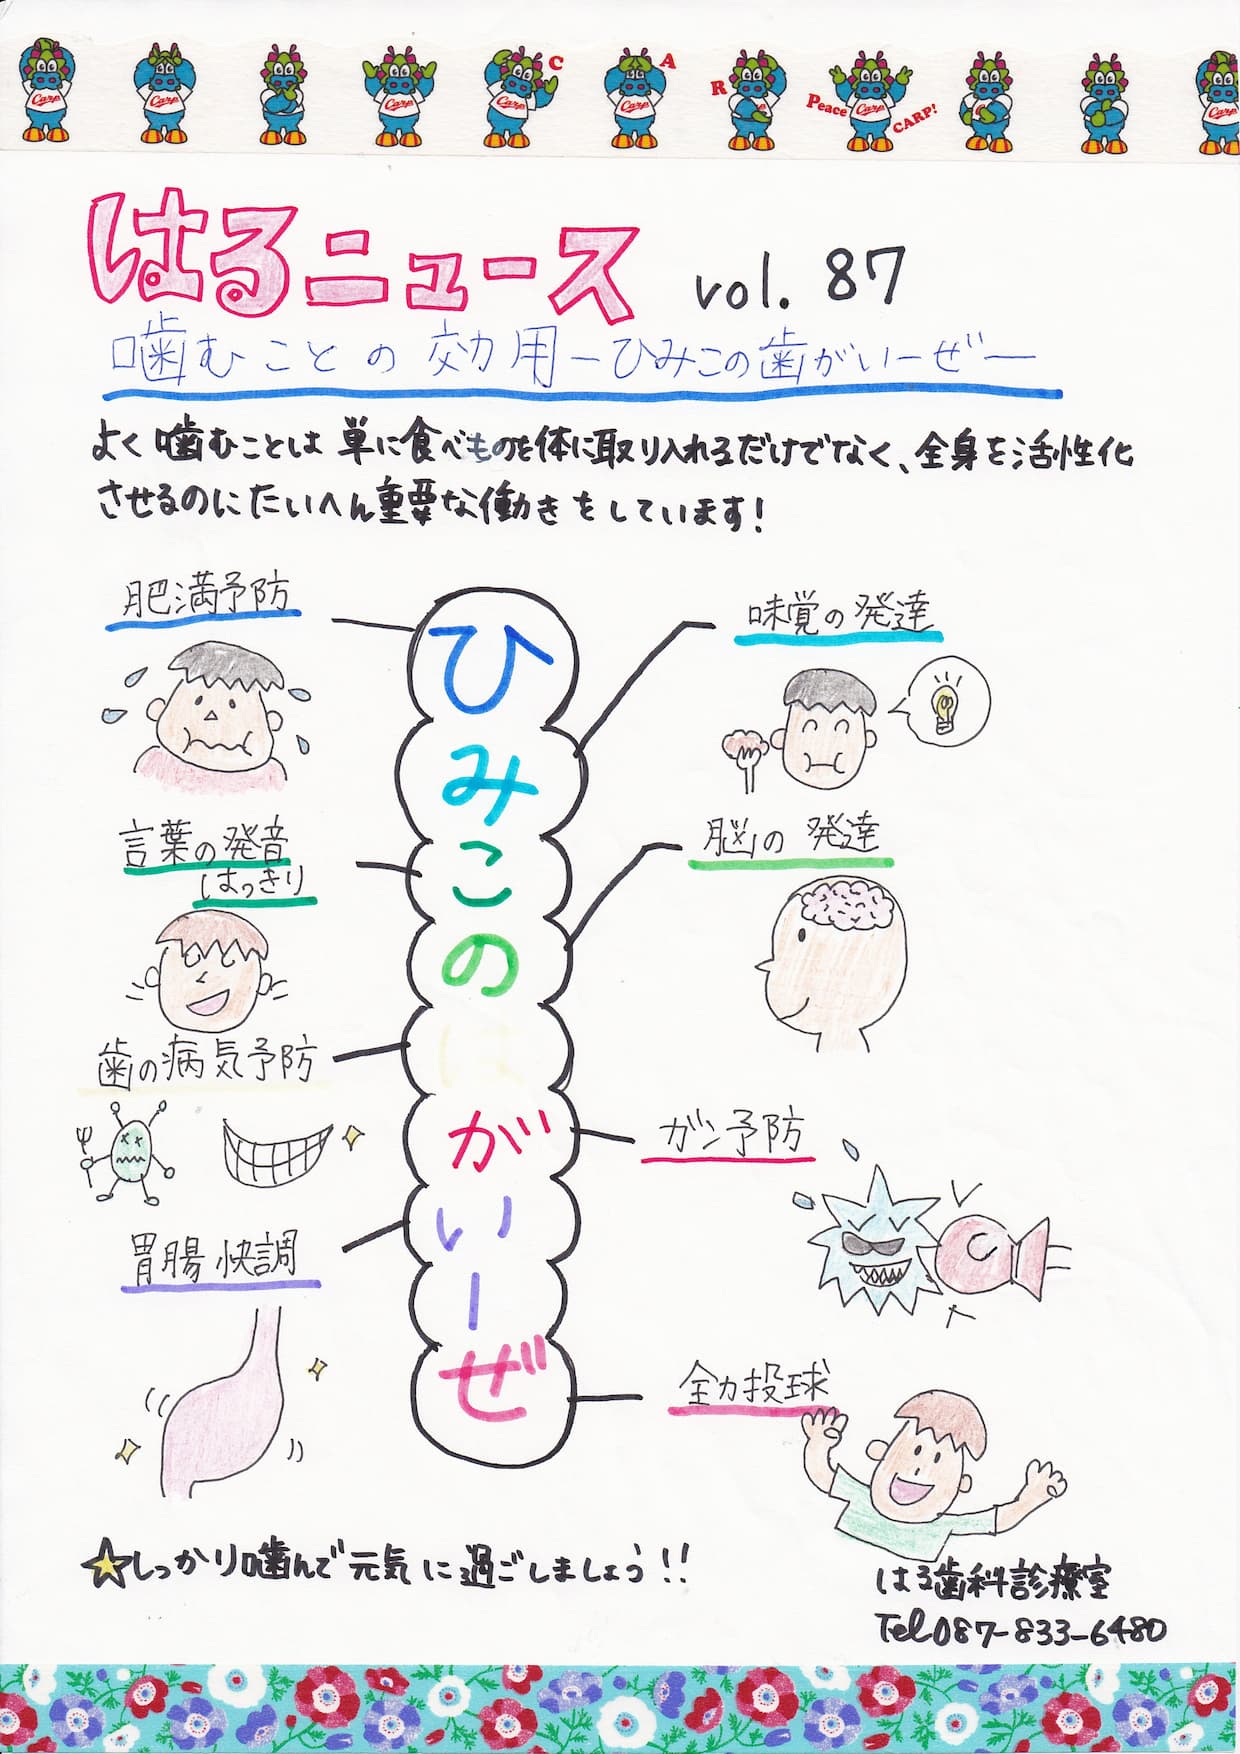 Carp Carp Carp Carp Carp Carp Carp
C A R Peace CARP!
はるニュース vol. 87
噛むことの効用-ひみこの歯がいーぜ-
よく噛むことは単に食べものを体に取り入れるだけでなく、全身を活性化
させるのにたいへん重要な働きをしています!
肥満予防
味覚の発達
言葉の発音
はっきり
脳の発達
歯の病気予防
ガン予防
胃腸快調
全力投球
ひ
み
こ
の
は
が
い
ー
ぜ
☆しっかり噛んで元気に過ごしましょう!!
はる歯科診療室
Tel 087-833-6480